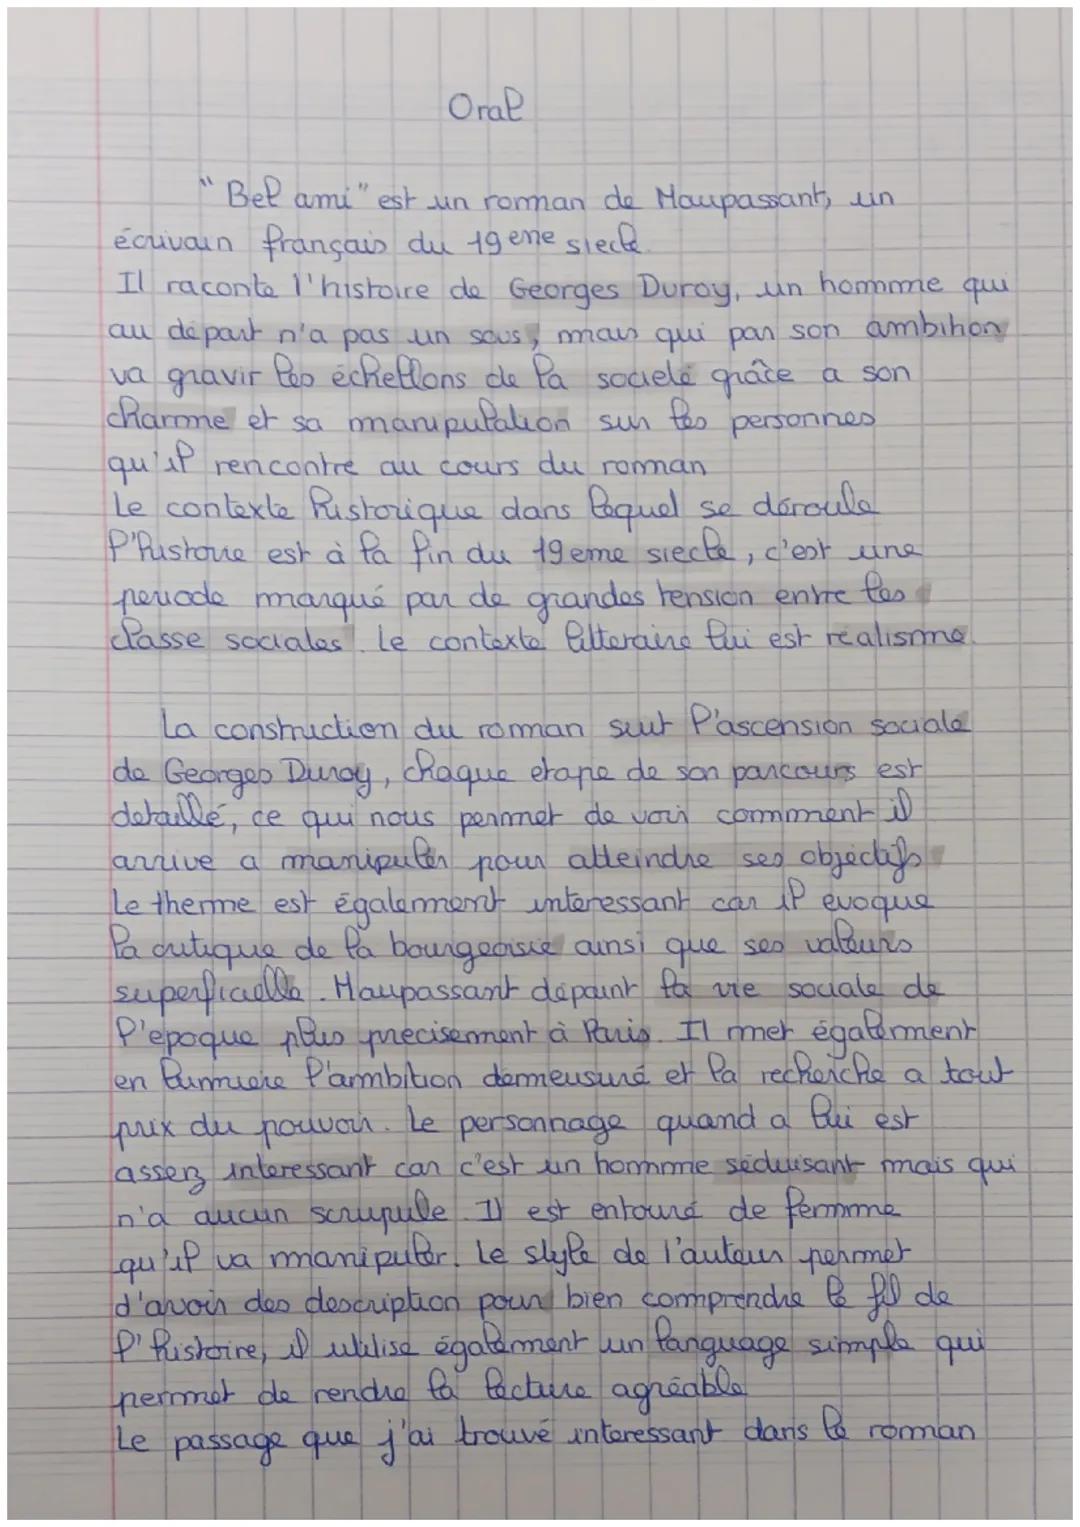 Oral
"Bel ami" est un roman de Maupassant, un
écrivain français du 19 eme siecle.
Il raconte l'histoire de Georges Duroy, un homme qui
au départ n'a pas un sous, mais qui par son ambition
va gravir les échellons de la societé grâce a son
charme et sa manipulation sur les personnes
qu'il rencontre au cours du roman
Le contexte historique dans lequel se déroule
l'histoire est à la fin du 19 eme siecle, c'est une
periode marqué par de grandes tension entre les
classe sociales. Le contexte litteraire lui est realisme.
La construction du roman suit l'ascension sociale
de Georges Duroy, chaque etape de son parcours est
detaillé, ce qui nous permet de voir comment il
arrive a manipuler pour atteindre ses objectifs
Le therme est également interessant car il evoque
la critique de la bourgeoisie ainsi que ses valeurs
superficielle. Maupassant dépaint la vie sociale de
l'epoque plus precisement à Paris. Il met également
en lumiere l'ambition demeusuré et la recherche a tout
prix du pouvoir. Le personnage quand a lui est
asserz interessant car c'est un homme séduisant mais qui
n'a aucun scrupule. Il est entouré de femme
qu'il va manipuler. Le style de l'auteur permet
d'avoir des description pour bien comprendre le fil de
l'histoire, il utilise également un language simple qui
permet de rendre la lecture agréable
Le passage que j'ai trouvé interessant dans le roman